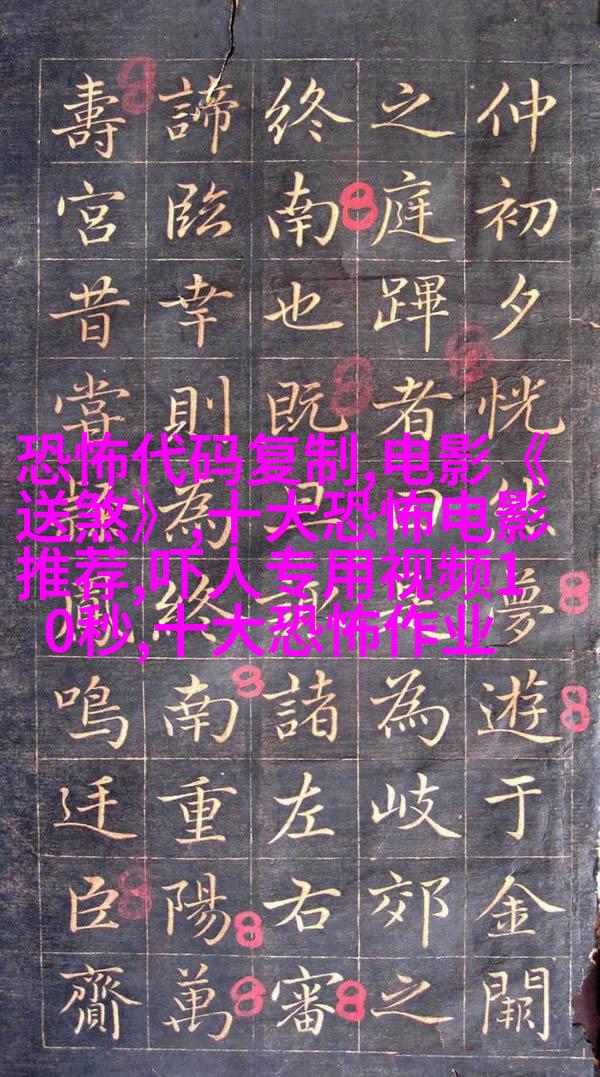 仲初夕恍夢遊于金闕
之庭蹕者為岐郊之
終南也既諸左右審
諦臨幸則為終南重陽萬
壽宮昔嘗鳴迋臣齎
恐怖代码复制,电影《
送煞》,十大恐怖电影
推荐,吓人专用视频1
0秒,十大恐怖作业